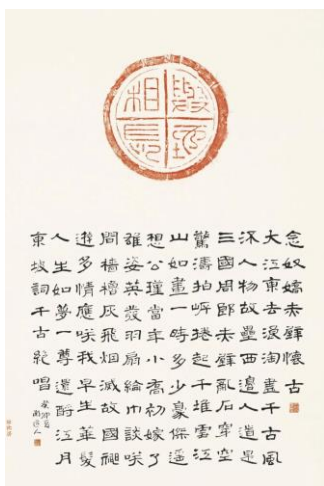 念奴嬌赤壁懷古
大江東去浪淘盡千古風
流人物故壘西邊人道是
三國周郎赤壁亂石穿空
驚濤拍岸捲起千堆雪江
山如畫一時多少豪傑遙
想公瑾當年小喬初嫁了
雄姿英發羽扇綸巾談咲
間檣櫓灰飛烟滅故國神
遊多情應咲我早生華髮
人生如夢一尊還酹江月
東坡詞千古絕唱